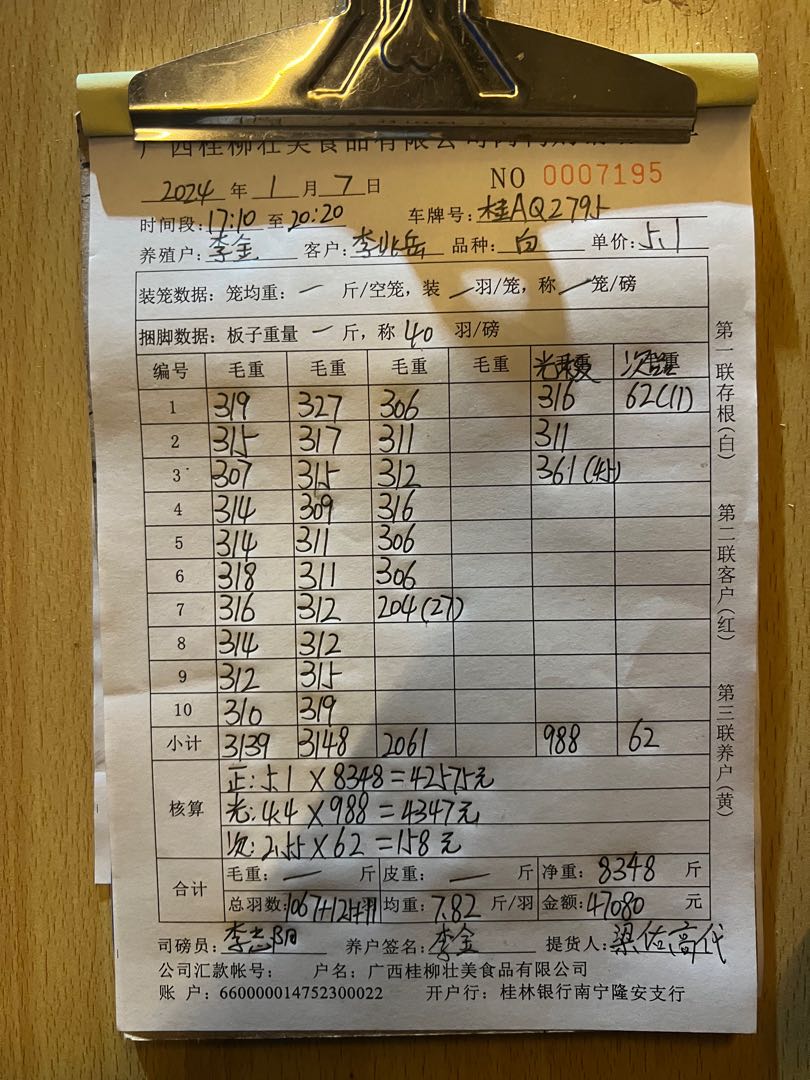 广西桂柳壮美食品有限公司
2024 年 1 月 7 日 NO 0007195
时间段: 17:10 至 20:20 车牌号: 桂AQ2795
养殖户: 李金 客户: 李兆岳 品种: 白 单价: 5.1
装笼数据: 笼均重: — 斤/空笼, 装 — 羽/笼, 称 — 笼/磅
捆脚数据: 板子重量 — 斤, 称 40 羽/磅
编号 毛重 毛重 毛重 毛重
1 319 327 306 316 62(11)
2 315 317 311 311
3 307 315 312 361(45)
4 314 309 316
5 314 311 306
6 318 311 306
7 316 312 204(27)
8 314 312
9 312 315
10 310 319
小计 3139 3148 2061 988 62
核算
正: 5.1 × 8348 = 42575元
光: 4.4 × 988 = 4347元
次: 2.55 × 62 = 158元
合计 毛重: — 斤 皮重: — 斤 净重: 8348 斤
总羽数: 1067+121+11 均重: 7.82 斤/羽 金额: 47080 元
司磅员: 李志阳 养户签名: 李金 提货人: 梁佑高代
公司汇款帐号: 户名: 广西桂柳壮美食品有限公司
账户: 660000014752300022 开户行: 桂林银行南宁隆安支行
第一联存根(白)
第二联客户(红)
第三联养户(黄)